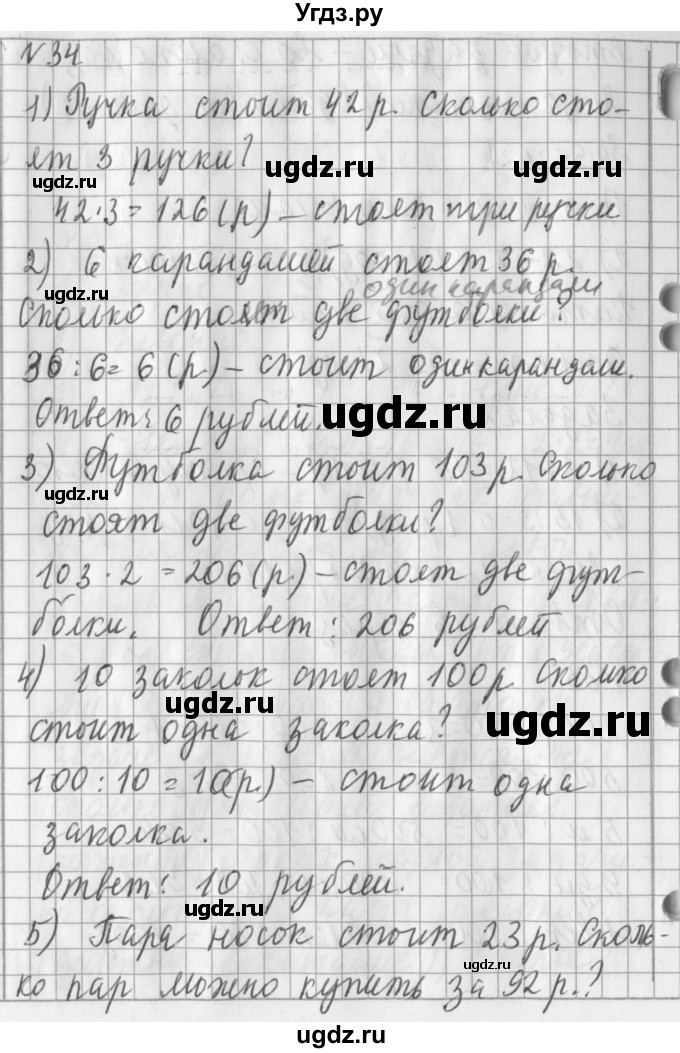 Угдз.ру
N 34
1) Ручка стоит 42 р. Сколько сто-
ят 3 ручки?
ugdz.ru ugdz.ru ugdz.ru
42·3=126(р) – стоят три ручки
2) 6 карандашей стоят 36 р.
ugdz.ru
один карандаш
Сколько стоят две футболки?
36:6=6(р.) – стоит один карандаш.
Ответ: 6 рублей.
ugdz.ru
3) Футболка стоит 103 р. Сколько
ugdz.ru
стоят две футболки?
103·2=206(р.) – стоят две фут-
болки. Ответ: 206 рублей
4) 10 заколок стоят 100 р. Сколько
ugdz.ru ugdz.ru
стоит одна заколка?
100:10=10(р.) – стоит одна
заколка.
Ответ: 10 рублей.
ugdz.ru
5) Пара носок стоит 23 р. Сколь-
ugdz.ru
ко пар можно купить за 92 р.?
ugdz.ru